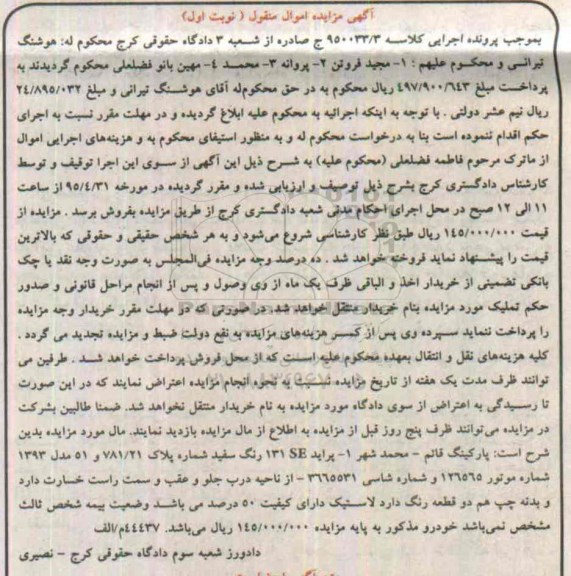 آگهی مزایده اموال منقول ( نوبت اول)
بموجب پرونده اجرایی کلاسه ۹۵۰۰۳۳/۳ ج صادره از شعبه ۳ دادگاه حقوقی کرج محکوم له: هوشنگ
تیرانی و محکوم علیهم : ۱- مجید فروتن ۲- پروانه ۳- محمد ۴- مهین بانو فضلعلی محکوم گردیدند به
پرداخت مبلغ ۴۹۷/۹۰۰/۶۴۳ ریال محکوم به در حق محکوم‌له آقای هوشنگ تیرانی و مبلغ ۲۴/۸۹۵/۰۳۲
ریال نیم عشر دولتی . با توجه به اینکه اجرائیه به محکوم علیه ابلاغ گردیده و در مهلت مقرر نسبت به اجرای
حکم اقدام ننموده است بنا به درخواست محکوم له و به منظور استیفای محکوم به و هزینه‌های اجرایی اموال
از ماترک مرحوم فاطمه فضلعلی (محکوم علیه) به شرح ذیل این آگهی از سوی این اجرا توقیف و توسط
کارشناس دادگستری کرج بشرح ذیل توصیف و ارزیابی شده و مقرر گردیده در مورخه ۹۵/۴/۳۱ از ساعت
۱۱ الی ۱۲ صبح در محل اجرای احکام مدنی شعبه دادگستری کرج از طریق مزایده بفروش برسد . مزایده از
قیمت ۱۴۵/۰۰۰/۰۰۰ ریال طبق نظر کارشناسی شروع می‌شود و به هر شخص حقیقی و حقوقی که بالاترین
قیمت را پیشنهاد نماید فروخته خواهد شد . ده درصد وجه مزایده فی‌المجلس به صورت وجه نقد یا چک
بانکی تضمینی از خریدار اخذ و الباقی ظرف یک ماه از وی وصول و پس از انجام مراحل قانونی و صدور
حکم تملیک مورد مزایده بنام خریدار منتقل خواهد شد. در صورتی که در مهلت مقرر خریدار وجه مزایده
را پرداخت ننماید سپرده وی پس از کسر هزینه‌های مزایده به نفع دولت ضبط و مزایده تجدید می گردد .
کلیه هزینه‌های نقل و انتقال بعهده محکوم علیه است که از محل فروش پرداخت خواهد شد . طرفین می
توانند ظرف مدت یک هفته از تاریخ مزایده نسبت به نحوه انجام مزایده اعتراض نمایند که در این صورت
تا رسیدگی به اعتراض از سوی دادگاه مورد مزایده به نام خریدار منتقل نخواهد شد. ضمنا طالبین بشرکت
در مزایده می‌توانند ظرف پنج روز قبل از مزایده به اطلاع از مال مزایده بازدید نمایند. مال مورد مزایده بدین
شرح است: پارکینگ قائم - محمد شهر ۱- پراید ۱۳۱ SE رنگ سفید شماره پلاک ۷۸۱/۲۱ و ۵۱ مدل ۱۳۹۳
شماره موتور ۱۲۶۵۶۵ و شماره شاسی ۳۶۶۵۵۳۱ - از ناحیه درب جلو و عقب و سمت راست خسارت دارد
و بدنه چپ هم دو قطعه رنگ دارد لاستیک دارای کیفیت ۵۰ درصد می باشد وضعیت بیمه شخص ثالث
مشخص نمی‌باشد خودرو مذکور به پایه مزایده ۱۴۵/۰۰۰/۰۰۰ ریال می‌باشد. ۴۴۴۳۷/م/الف
دادورز شعبه سوم دادگاه حقوقی کرج - نصیری